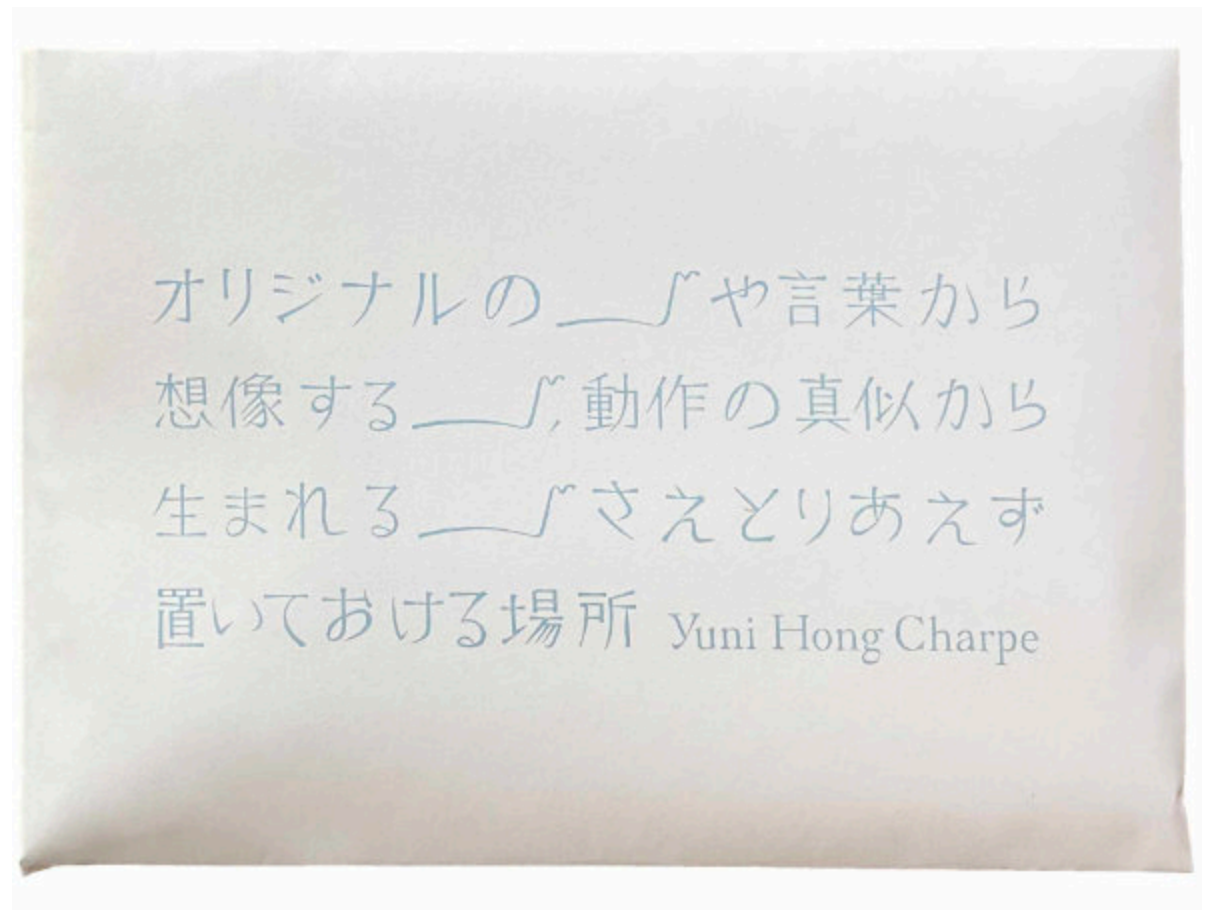 オリジナルの__∫や言葉から
想像する__∫,動作の真似から
生まれる__∫さえとりあえず
置いておける場所 Yuni Hong Charpe